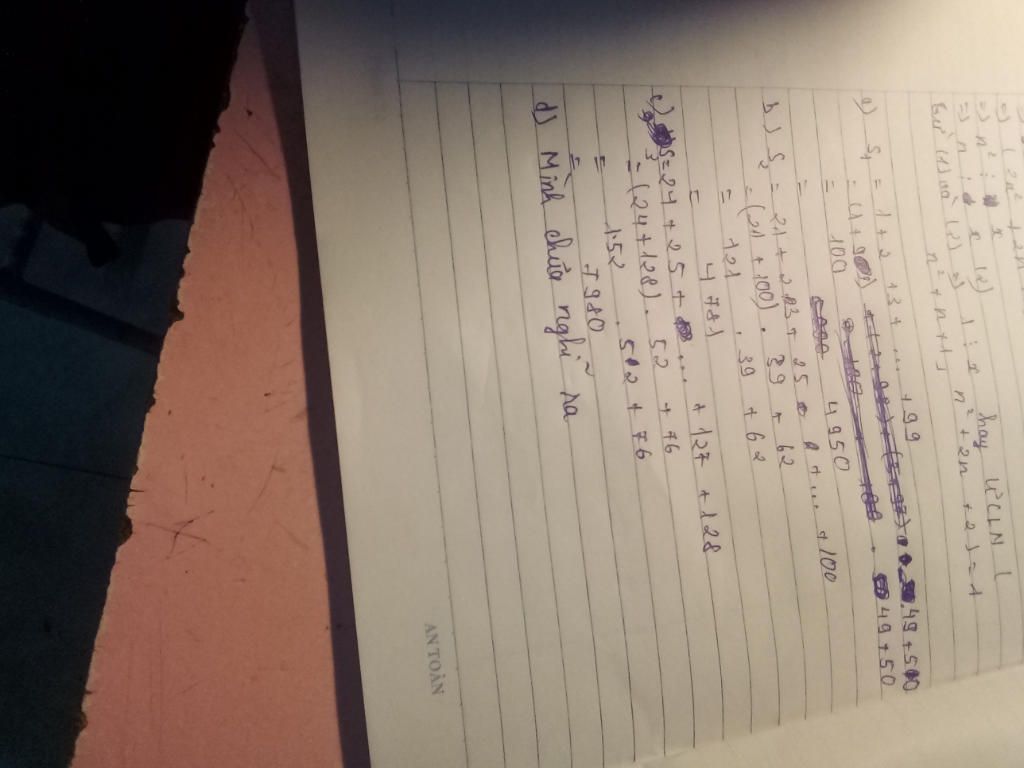 =) (2n² + 2n
=) n² ⋮ x (2)
=) n ⋮ x
Từ (1) và (2) =) 1 ⋮ x hay ƯCLN (
n² + n + 1, n² + 2n + 2) = 1
a) S₁ = 1 + 2 + 3 + ... + 99
= (1 + 99) . 49 + 50
= 100 . 49 + 50
= 4950
b) S₂ = 21 + 23 + 25 + ... + 100
= (21 + 100) . 39 + 62
= 121 . 39 + 62
= 4 781
c) S₃ = 24 + 25 + ... + 127 + 128
= (24 + 128) . 52 + 76
= 152 . 52 + 76
= 7980
d) Mình chưa nghĩ ra
AN TOÀN